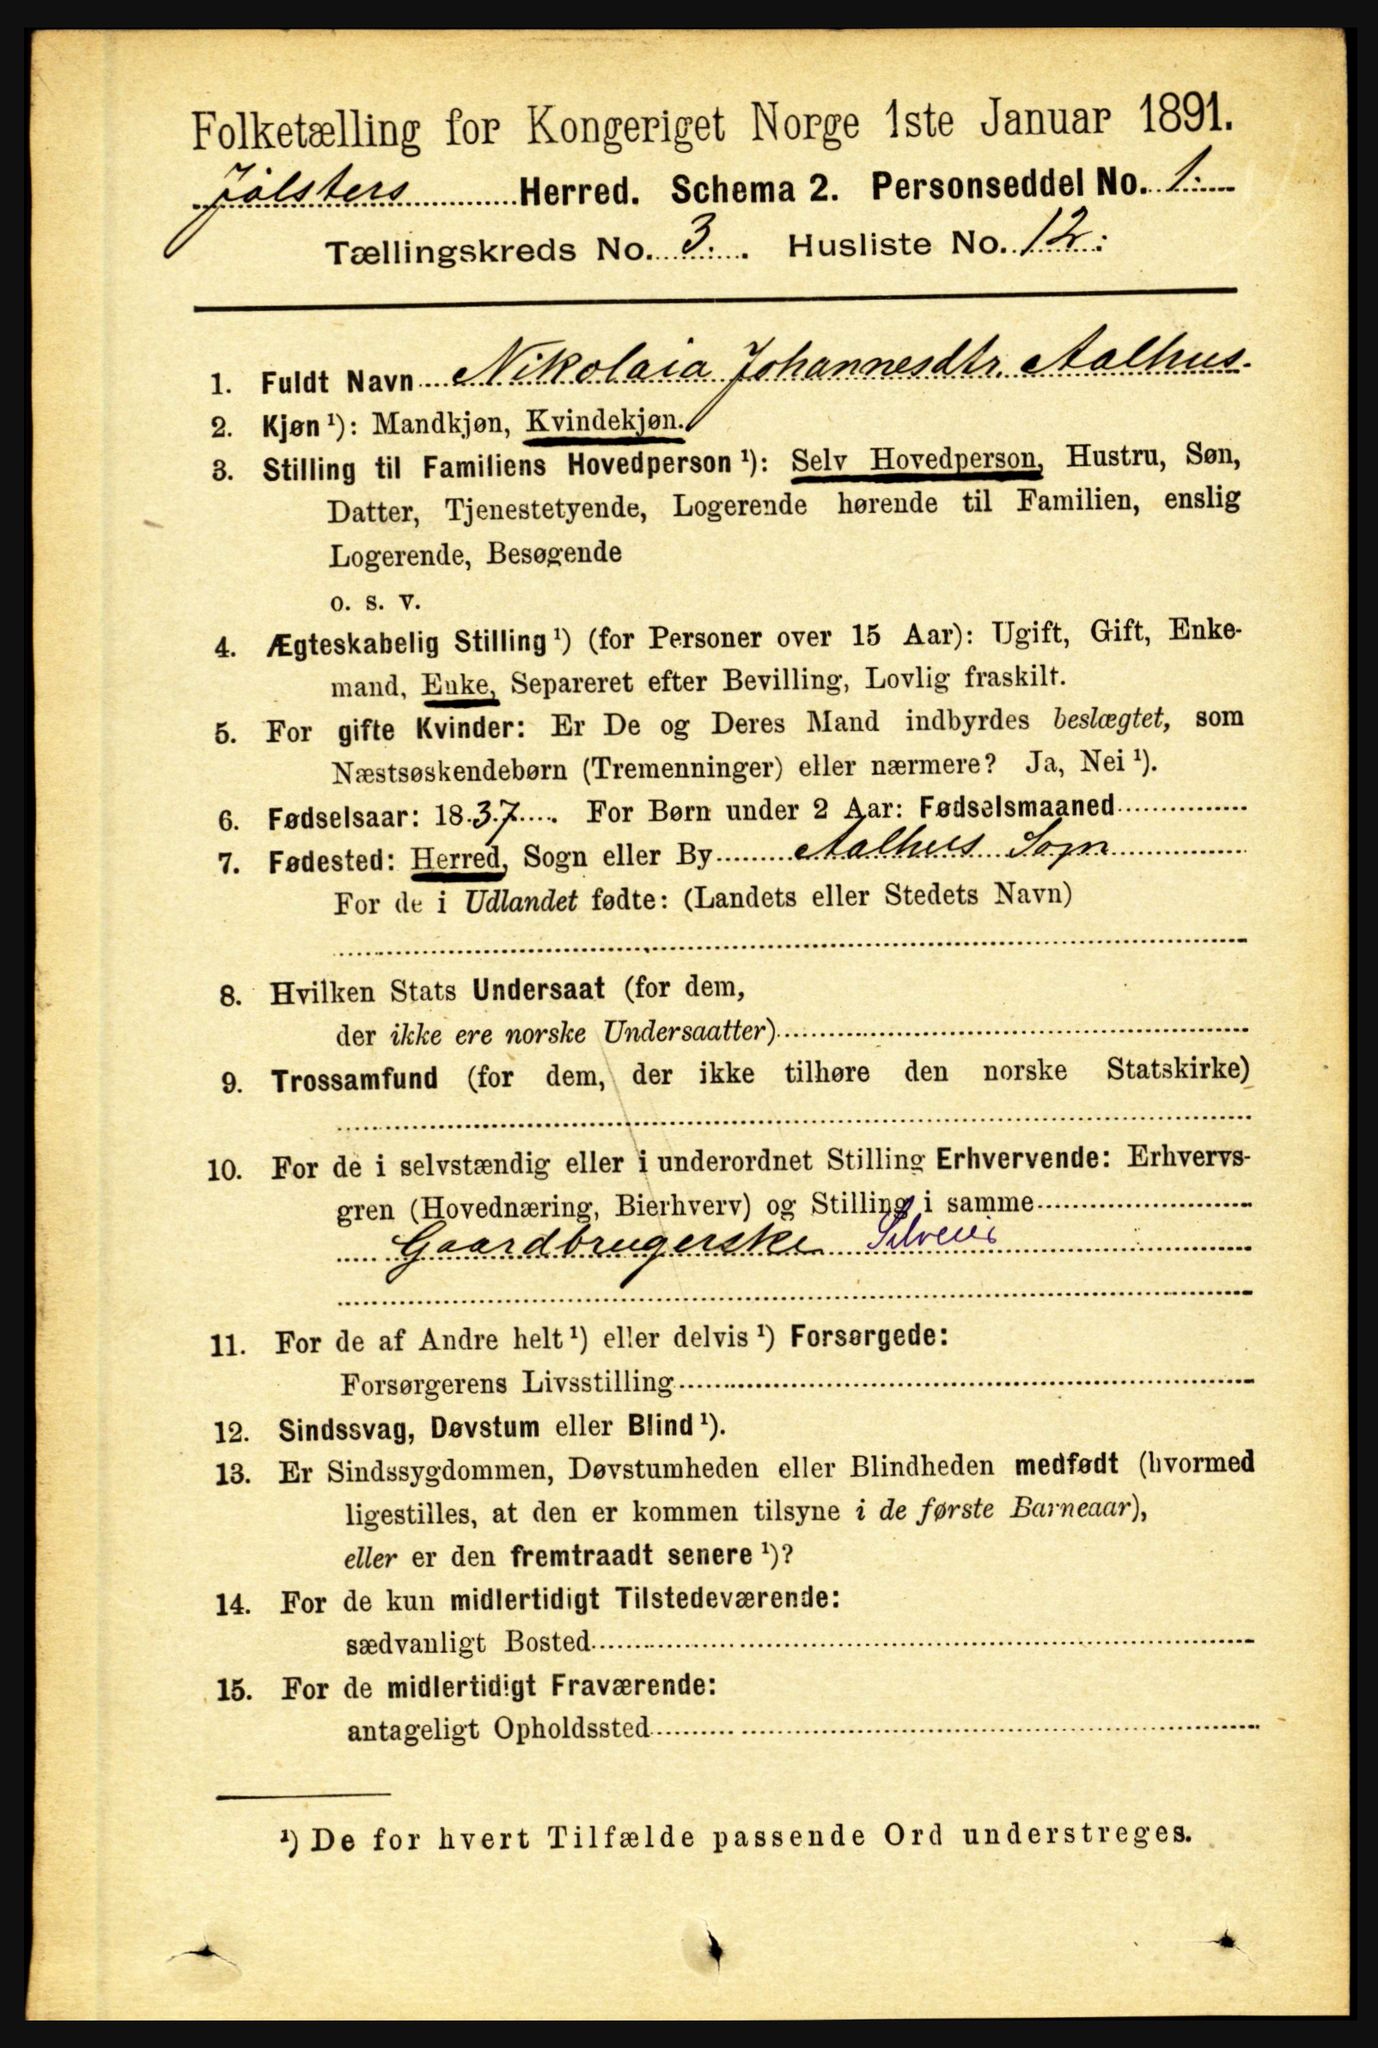 Folketælling for Kongeriget Norge 1ste Januar 1891.
Jølsters Herred. Schema 2. Personseddel No. 1.
Tællingskreds No. 3. Husliste No. 12.
1. Fuldt Navn Nikolaia Johannesdtr. Aalhus.
2. Kjøn ¹): Mandkjøn, Kvindekjøn.
3. Stilling til Familiens Hovedperson ¹): Selv Hovedperson, Hustru, Søn,
Datter, Tjenestetyende, Logerende hørende til Familien, enslig
Logerende, Besøgende
o. s. v.
4. Ægteskabelig Stilling ¹) (for Personer over 15 Aar): Ugift, Gift, Enke-
mand, Enke, Separeret efter Bevilling, Lovlig fraskilt.
5. For gifte Kvinder: Er De og Deres Mand indbyrdes beslægtet, som
Næstsøskendebørn (Tremenninger) eller nærmere? Ja, Nei ¹).
6. Fødselsaar: 1837. For Børn under 2 Aar: Fødselsmaaned
7. Fødested: Herred, Sogn eller By Aalhus Sogn
For de i Udlandet fødte: (Landets eller Stedets Navn)
8. Hvilken Stats Undersaat (for dem,
der ikke ere norske Undersaatter)
9. Trossamfund (for dem, der ikke tilhøre den norske Statskirke)
10. For de i selvstændig eller i underordnet Stilling Erhvervende: Erhvervs-
gren (Hovednæring, Bierhverv) og Stilling i samme
Gaardbrugerske Selveier
11. For de af Andre helt ¹) eller delvis ¹) Forsørgede:
Forsørgerens Livsstilling
12. Sindssvag, Døvstum eller Blind ¹).
13. Er Sindssygdommen, Døvstumheden eller Blindheden medfødt (hvormed
ligestilles, at den er kommen tilsyne i de første Barneaar),
eller er den fremtraadt senere ¹)?
14. For de kun midlertidigt Tilstedeværende:
sædvanligt Bosted
15. For de midlertidigt Fraværende:
antageligt Opholdssted
¹) De for hvert Tilfælde passende Ord understreges.